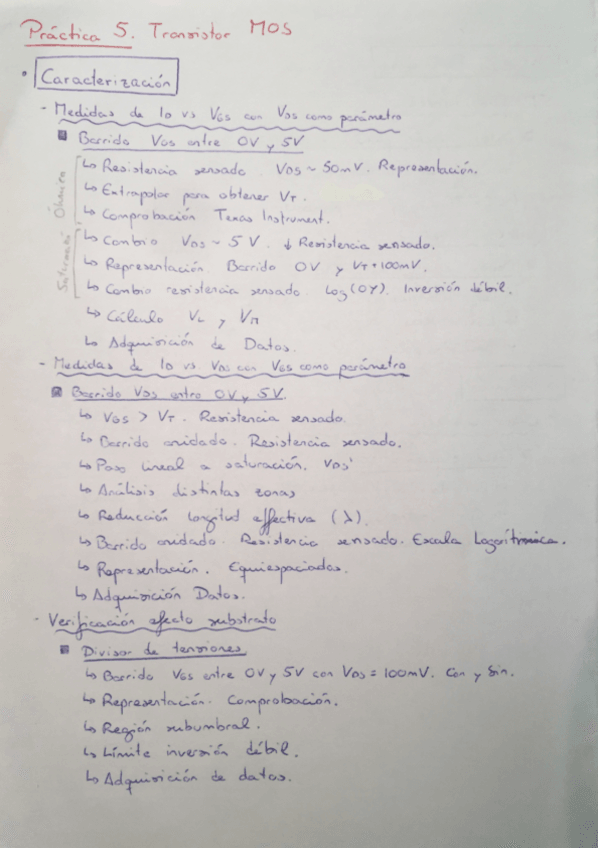 Práctica 5. Transistor MOS
• Caracterización
- Medidas de ID vs VGS con VDS como parámetro
Barrido VGS entre 0V y 5V
↳ Resistencia sensado. VDS ~ 50mV. Representación.
↳ Extrapolar para obtener VT.
↳ Comprobación Texas Instrument.
↳ Cambio VDS ~ 5 V. ↓ Resistencia sensado.
↳ Representación. Barrido 0V y VT+100mV.
↳ Cambio resistencia sensado. Log(OY). Inversión débil.
↳ Cálculo VL y VM
↳ Adquisición de Datos.
Óhmica
- Medidas de ID vs. VDS con VGS como parámetro
Barrido VDS entre 0V y 5V.
↳ VGS > VT. Resistencia sensado.
↳ Barrido anidado. Resistencia sensado.
↳ Paso lineal a saturación. VDS'
↳ Análisis distintas zonas
↳ Reducción longitud effectiva (λ).
↳ Barrido anidado. Resistencia sensado. Escala Logarítmica.
↳ Representación. Equiespaciadas.
↳ Adquisición Datos.
- Verificación efecto substrato
Divisor de tensiones
↳ Barrido VGS entre 0V y 5V con VDS = 100mV. Con y Sin.
↳ Representación. Comprobación.
↳ Región subumbral.
↳ Límite inversión débil.
↳ Adquisición de datos.